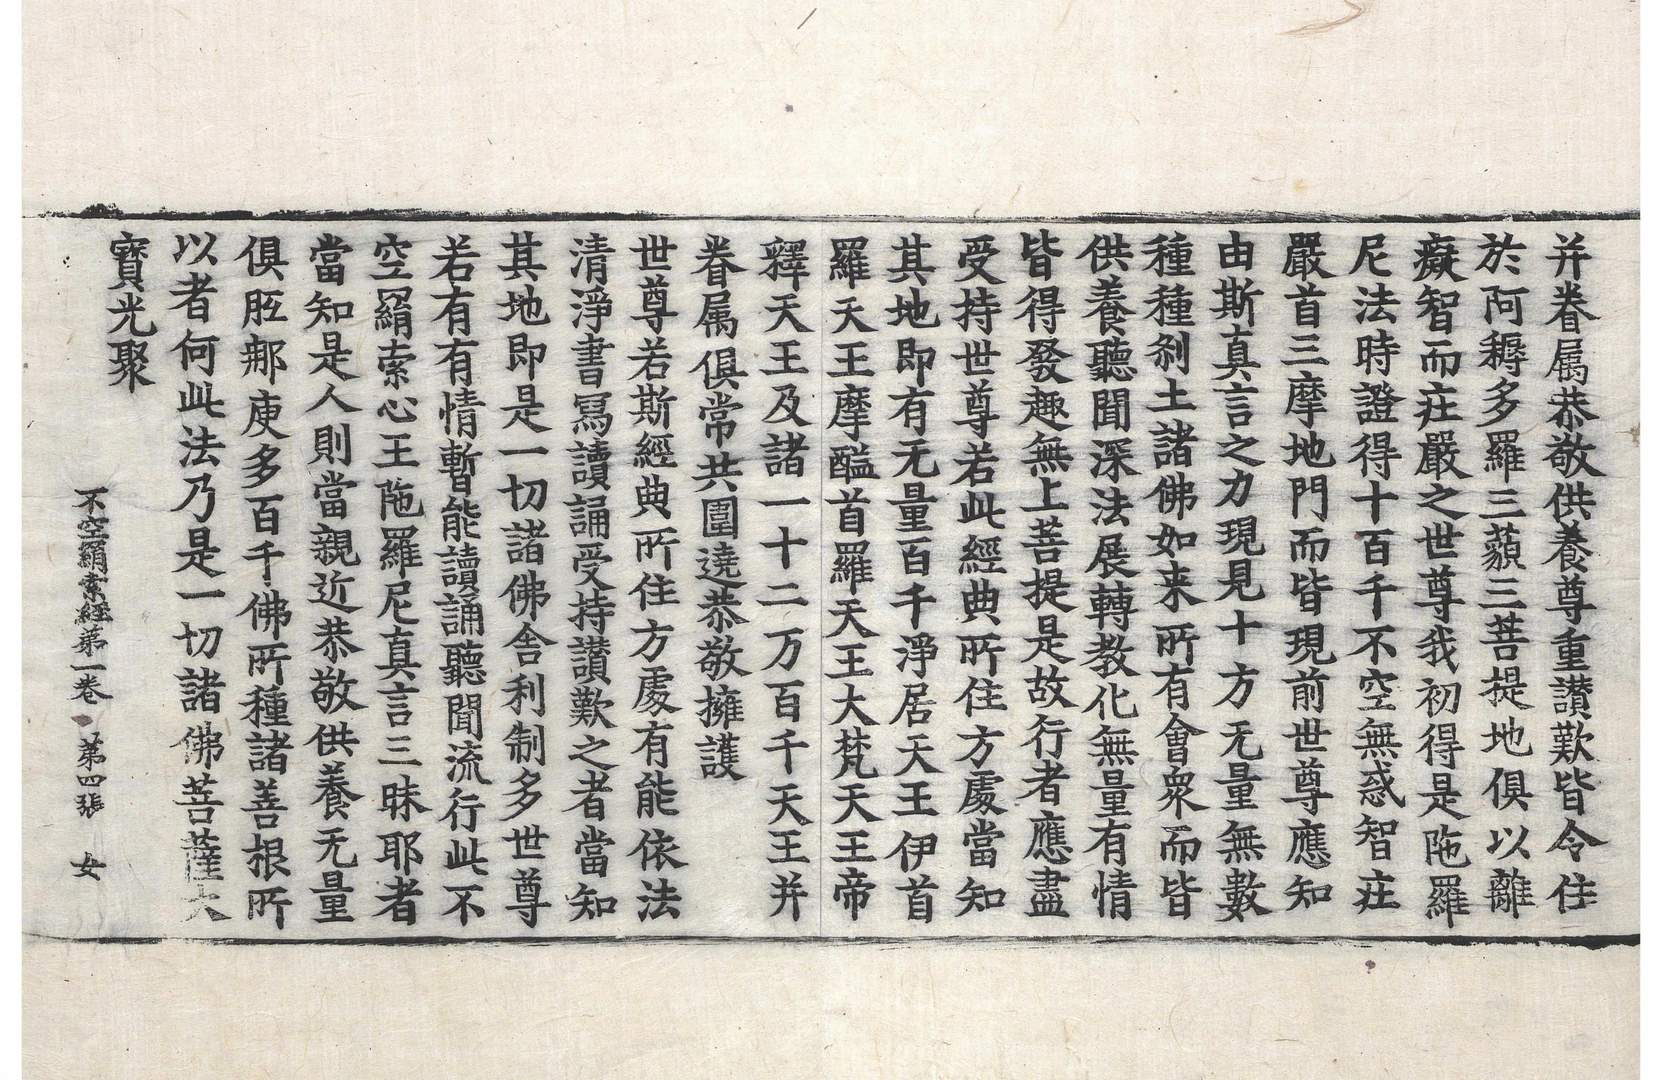 并眷属恭敬供養尊重讃歎皆令住
於阿耨多羅三藐三菩提地俱以離
癡智而庄嚴之世尊我初得是陁羅
尼法時證得十百千不空無惑智庄
嚴首三摩地門而皆現前世尊應知
由斯真言之力現見十方无量無數
種種刹土諸佛如来所有會衆而皆
供養聽聞深法展轉教化無量有情
皆得發趣無上菩提是故行者應盡
受持世尊若此經典所住方處當知
其地即有无量百千淨居天王伊首
羅天王摩醯首羅天王大梵天王帝
釋天王及諸一十二万百千天王并
眷属俱常共圍遶恭敬擁護
世尊若斯經典所住方處有能依法
清淨書寫讀誦受持讃歎之者當知
其地即是一切諸佛舍利制多世尊
若有有情暫能讀誦聽聞流行此不
空羂索心王陁羅尼真言三昧耶者
當知是人則當親近恭敬供養无量
俱胝郍庾多百千佛所種諸善根所
以者何此法乃是一切諸佛菩薩大
寶光聚
不空羂索經第一卷　第四張　女